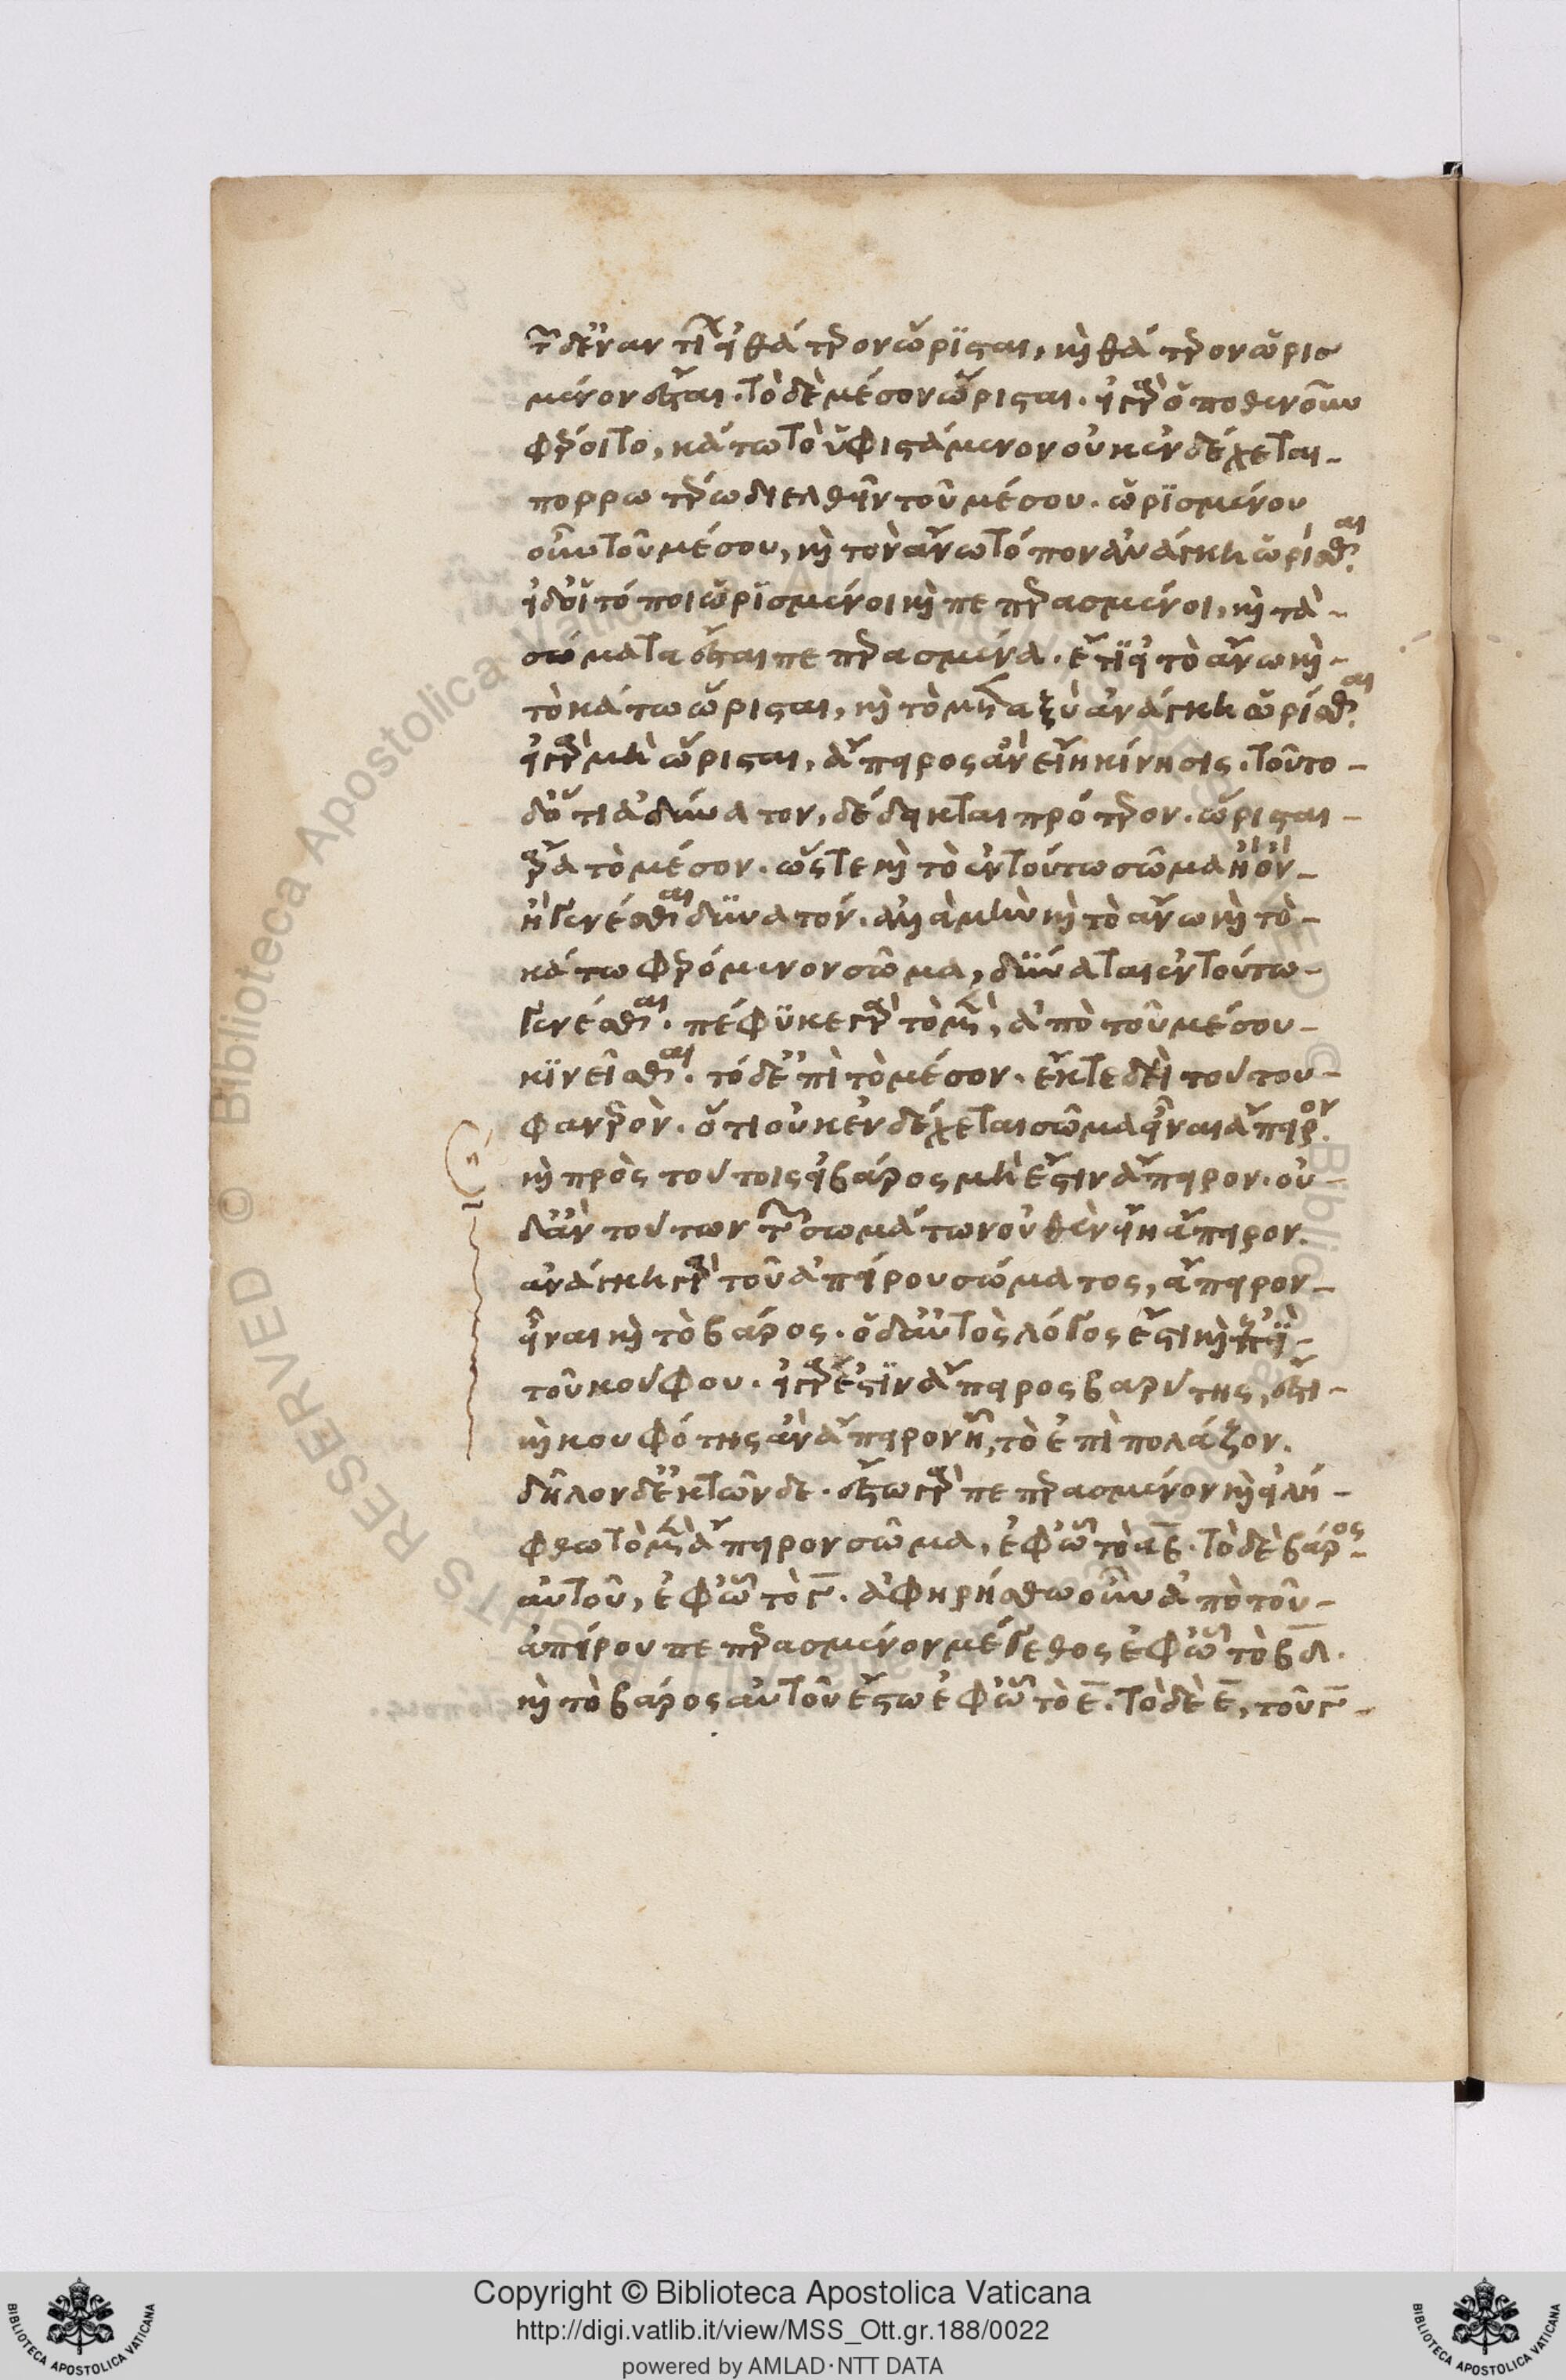 τῶν δ' ἐναντίων εἰ θάτερον ὥρισται, καὶ θάτερον ὡρισ
μένον ἔσται. τὸ δὲ μέσον ὥρισται. εἰ γὰρ ὁποθενοῦν
φέροιτο, κάτω τὸ ὑφιστάμενον οὐκ ἐνδέχεται
πορρωτέρω διελθεῖν τοῦ μέσου. ὡρισμένου
οὖν τοῦ μέσου, καὶ τὸν ἄνω τόπον ἀνάγκη ὡρίσθαι.
εἰ δ' οἱ τόποι ὡρισμένοι καὶ πεπερασμένοι, καὶ τὰ
σώματα ἔσται πεπερασμένα. ἔτι εἰ τὸ ἄνω καὶ
τὸ κάτω ὥρισται, καὶ τὸ μεταξὺ ἀνάγκη ὡρίσθαι.
εἰ γὰρ μὴ ὥρισται, ἄπειρος ἂν εἴη κίνησις. τοῦτο
δ' ὅτι ἀδύνατον, δέδεικται πρότερον. ὥρισται
ἄρα τὸ μέσον. ὥστε καὶ τὸ ἐν τούτω σῶμα ἢ ὂν
ἢ γενέσθαι δυνατόν. ἀλλὰ μὴν καὶ τὸ ἄνω καὶ τὸ
κάτω φερόμενον σῶμα, δύναται ἐν τούτω
γενέσθαι. πέφυκε γὰρ τὸ μὲν, ἀπὸ τοῦ μέσου
κινεῖσθαι. τὸ δ' ἐπὶ τὸ μέσον. ἔκ τε δὴ τούτου
φανερὸν. ὅτι οὐκ ἐνδέχεται σῶμα εἶναι ἄπειρον.
καὶ πρὸς τούτοις εἰ βάρος μή ἐστιν ἄπειρον. οὐ
δ' ἂν τούτων τῶν σωμάτων οὐθὲν εἴη ἄπειρον.
ἀνάγκη γὰρ τοῦ ἀπείρου σώματος, ἄπειρον
εἶναι καὶ τὸ βάρος. ὁ δ' αὐτὸς λόγος ἔστι καὶ ἐπὶ
τοῦ κούφου. εἰ γάρ ἐστιν ἄπειρος βαρύτης, ἔστι
καὶ κουφότης ἂν ἄπειρον ἦ, τὸ ἐπιπολάζον.
δῆλον δ' ἐκ τῶνδε. ἔστω γὰρ πεπερασμένον καὶ εἰλή
φθω τὸ μὲν ἄπειρον σῶμα, ἐφ' ὧ τὸ αβ. τὸ δὲ βάρος
αὐτοῦ, ἐφ' ὧ τὸ γ. ἀφηρήσθω οὖν ἀπὸ τοῦ
ἀπείρου πεπερασμένον μέγεθος ἐφ' ὧ τὸ βδ.
καὶ τὸ βάρος αὐτοῦ ἔστω ἐφ' ὧ τὸ ε. τὸ δὲ ε, τοῦ γ
Copyright © Biblioteca Apostolica Vaticana
http://digi.vatlib.it/view/MSS_Ott.gr.188/0022
powered by AMLAD·NTT DATA
BIBLIOTECA APOSTOLICA VATICANA
BIBLIOTECA APOSTOLICA VATICANA